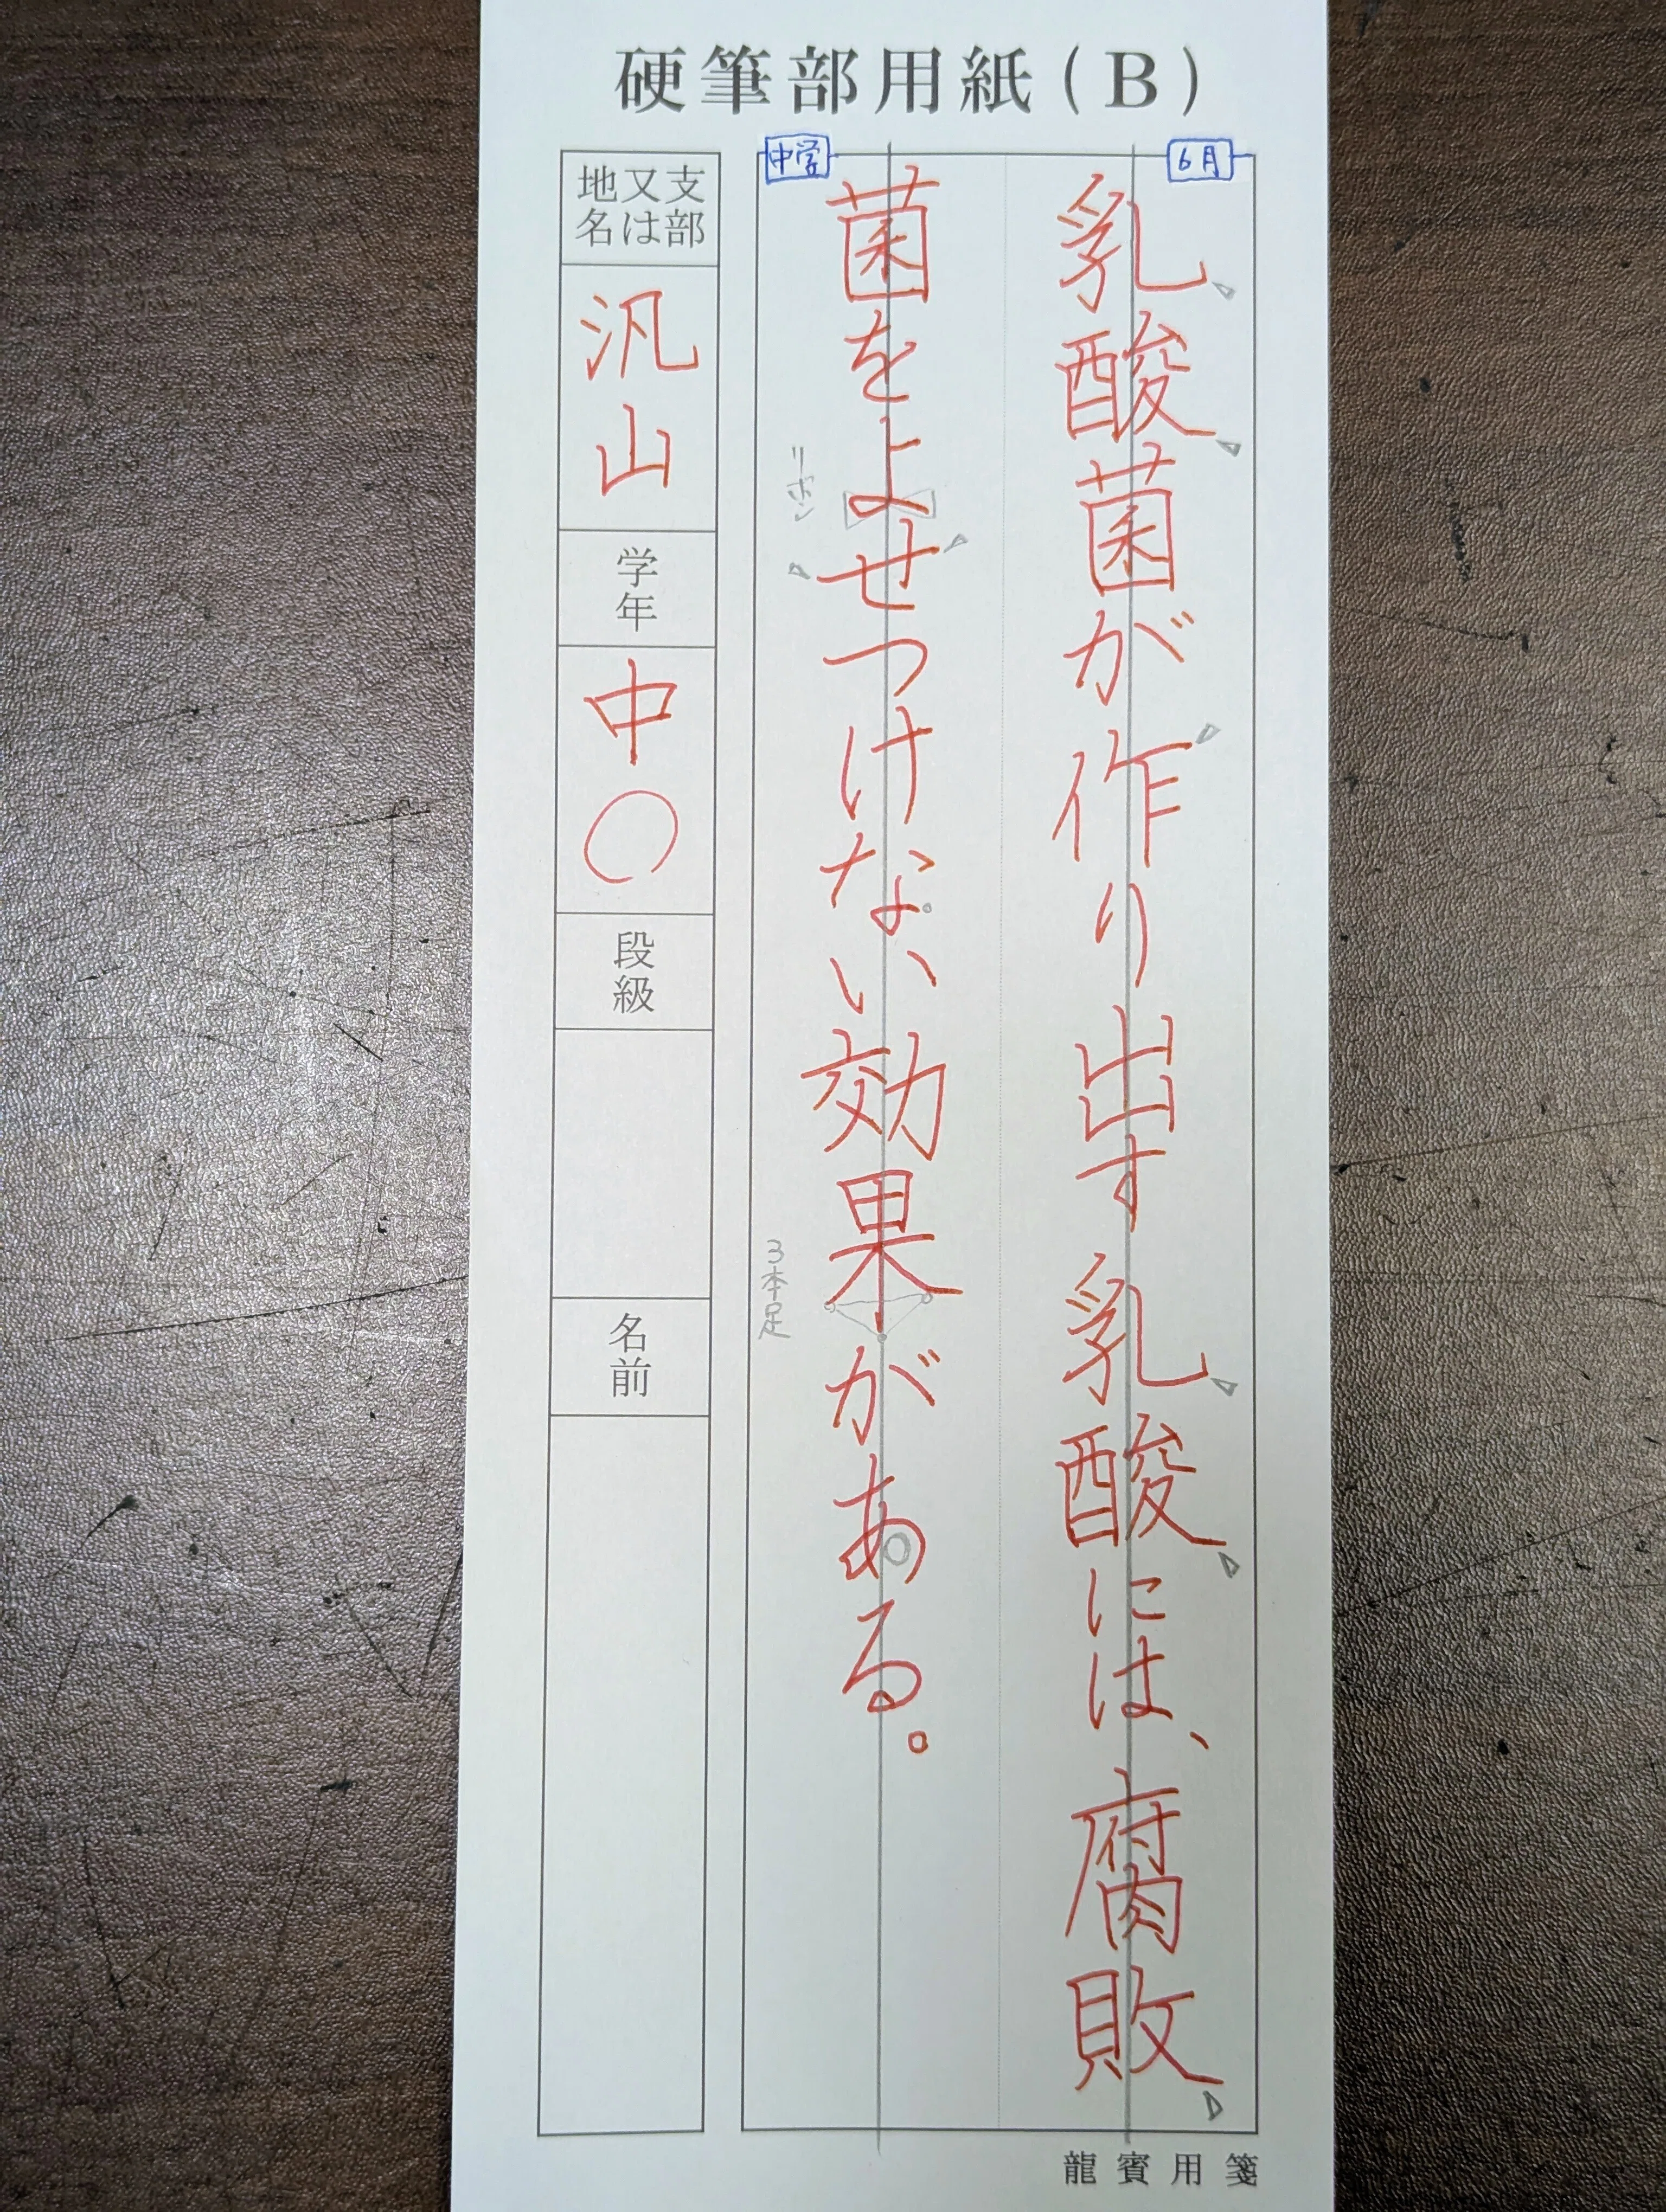 硬筆部用紙(B)
6月
乳酸菌が作り出す乳酸には、腐敗
中学
菌をよせつけない効果がある。
リボン
3本足
支部又は地名
汎山
学年
中〇
段級
名前
龍賓用箋